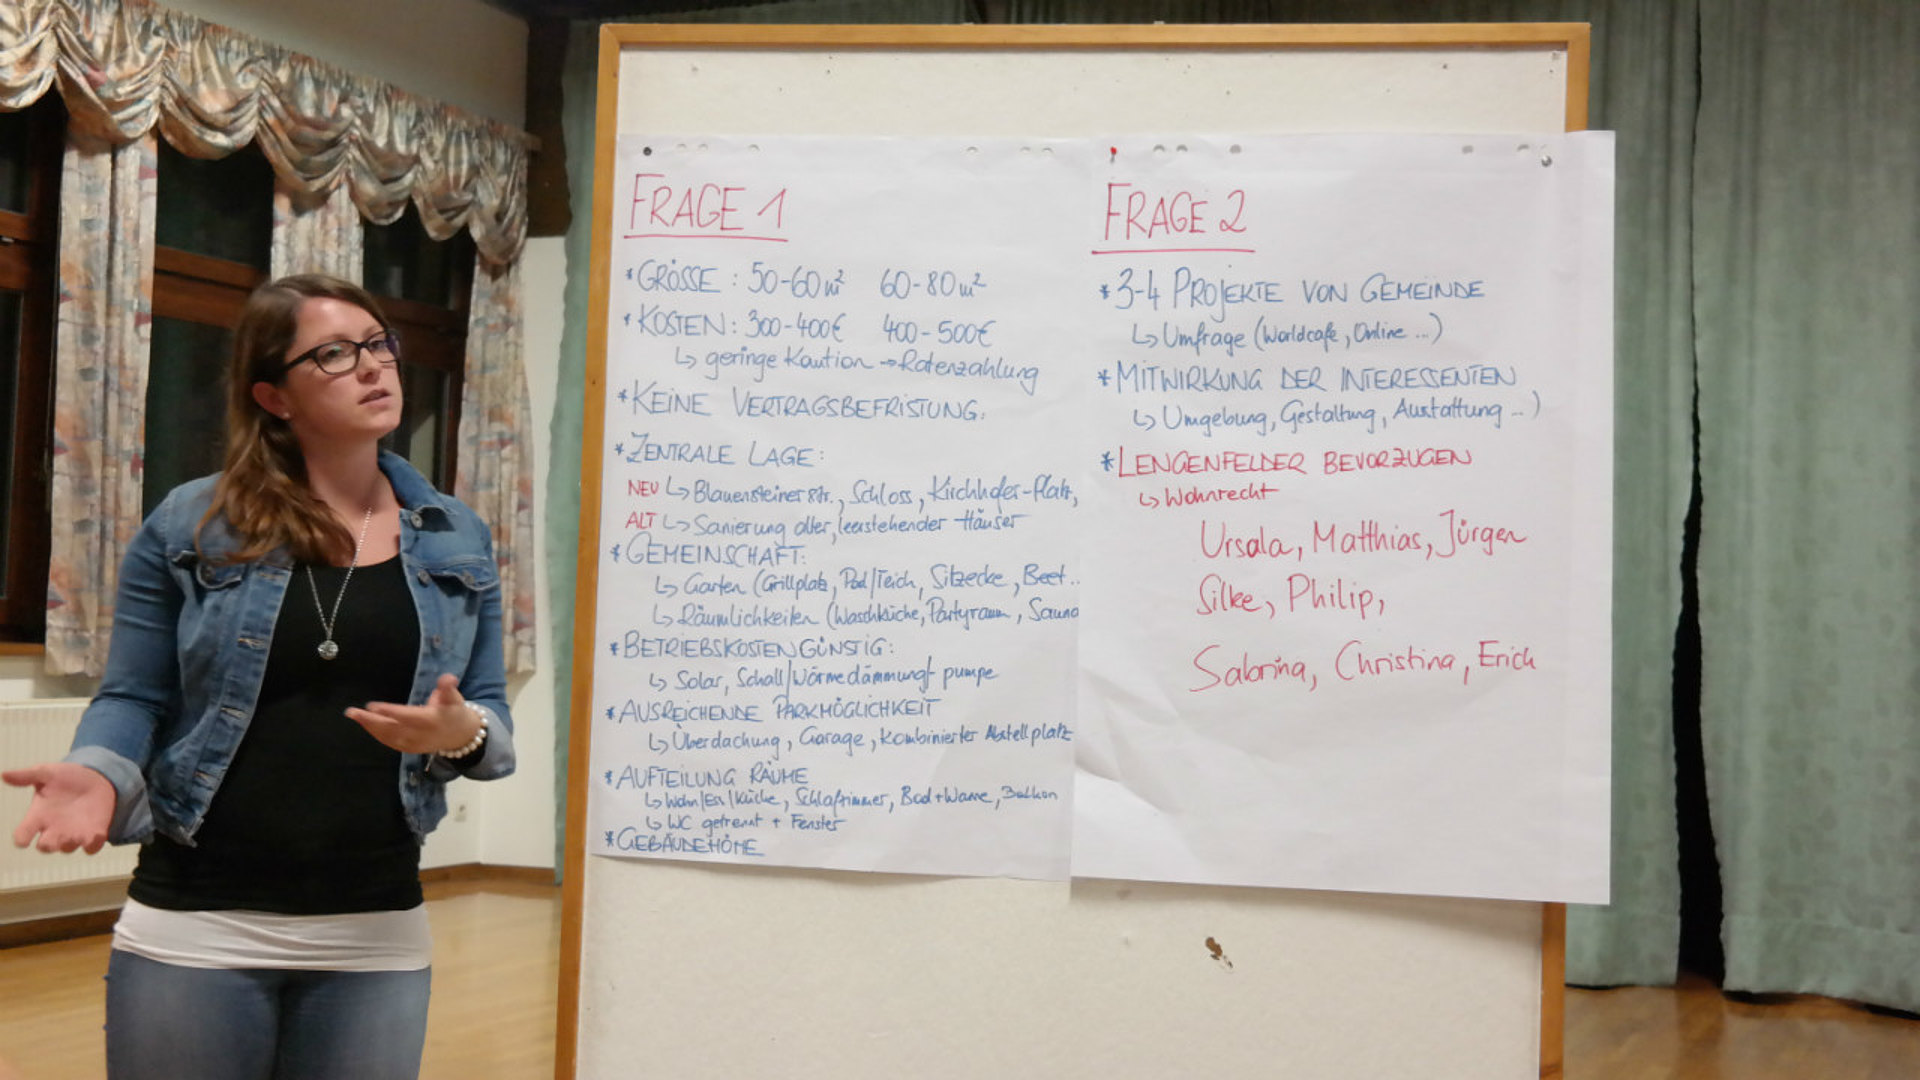 FRAGE 1
*GRÖSSE : 50-60m² 60-80m²
*KOSTEN : 300-400€ 400-500€
↳ geringe Kaution → Ratenzahlung
*KEINE VERTRAGSBEFRISTUNG.
*ZENTRALE LAGE:
NEU ↳ Blauensteinerstr., Schloss, Kirchhofer-Platz,
ALT ↳ Sanierung alter, leerstehender Häuser
*GEMEINSCHAFT:
↳ Garten (Grillplatz, Pool/Teich, Sitzecke, Beet..
↳ Räumlichkeiten (Waschküche, Partyraum, Sauna
*BETRIEBSKOSTENGÜNSTIG:
↳ Solar, Schall/Wärmedämmung/- pumpe
*AUSREICHENDE PARKMÖGLICHKEIT
↳ Überdachung, Garage, kombinierter Abstellplatz
*AUFTEILUNG RÄUME
↳ Wohn/Ess/Küche, Schlafzimmer, Bad+Wanne, Balkon
↳ WC getrennt + Fenster
*GEBÄUDEHÖHE
FRAGE 2
*3-4 PROJEKTE VON GEMEINDE
↳ Umfrage (Worldcafe, Online ...)
*MITWIRKUNG DER INTERESSENTEN
↳ Umgebung, Gestaltung, Austattung ... )
*LENGENFELDER BEVORZUGEN
↳ Wohnrecht
Ursala, Matthias, Jürgen
Silke, Philip,
Sabrina, Christina, Erich